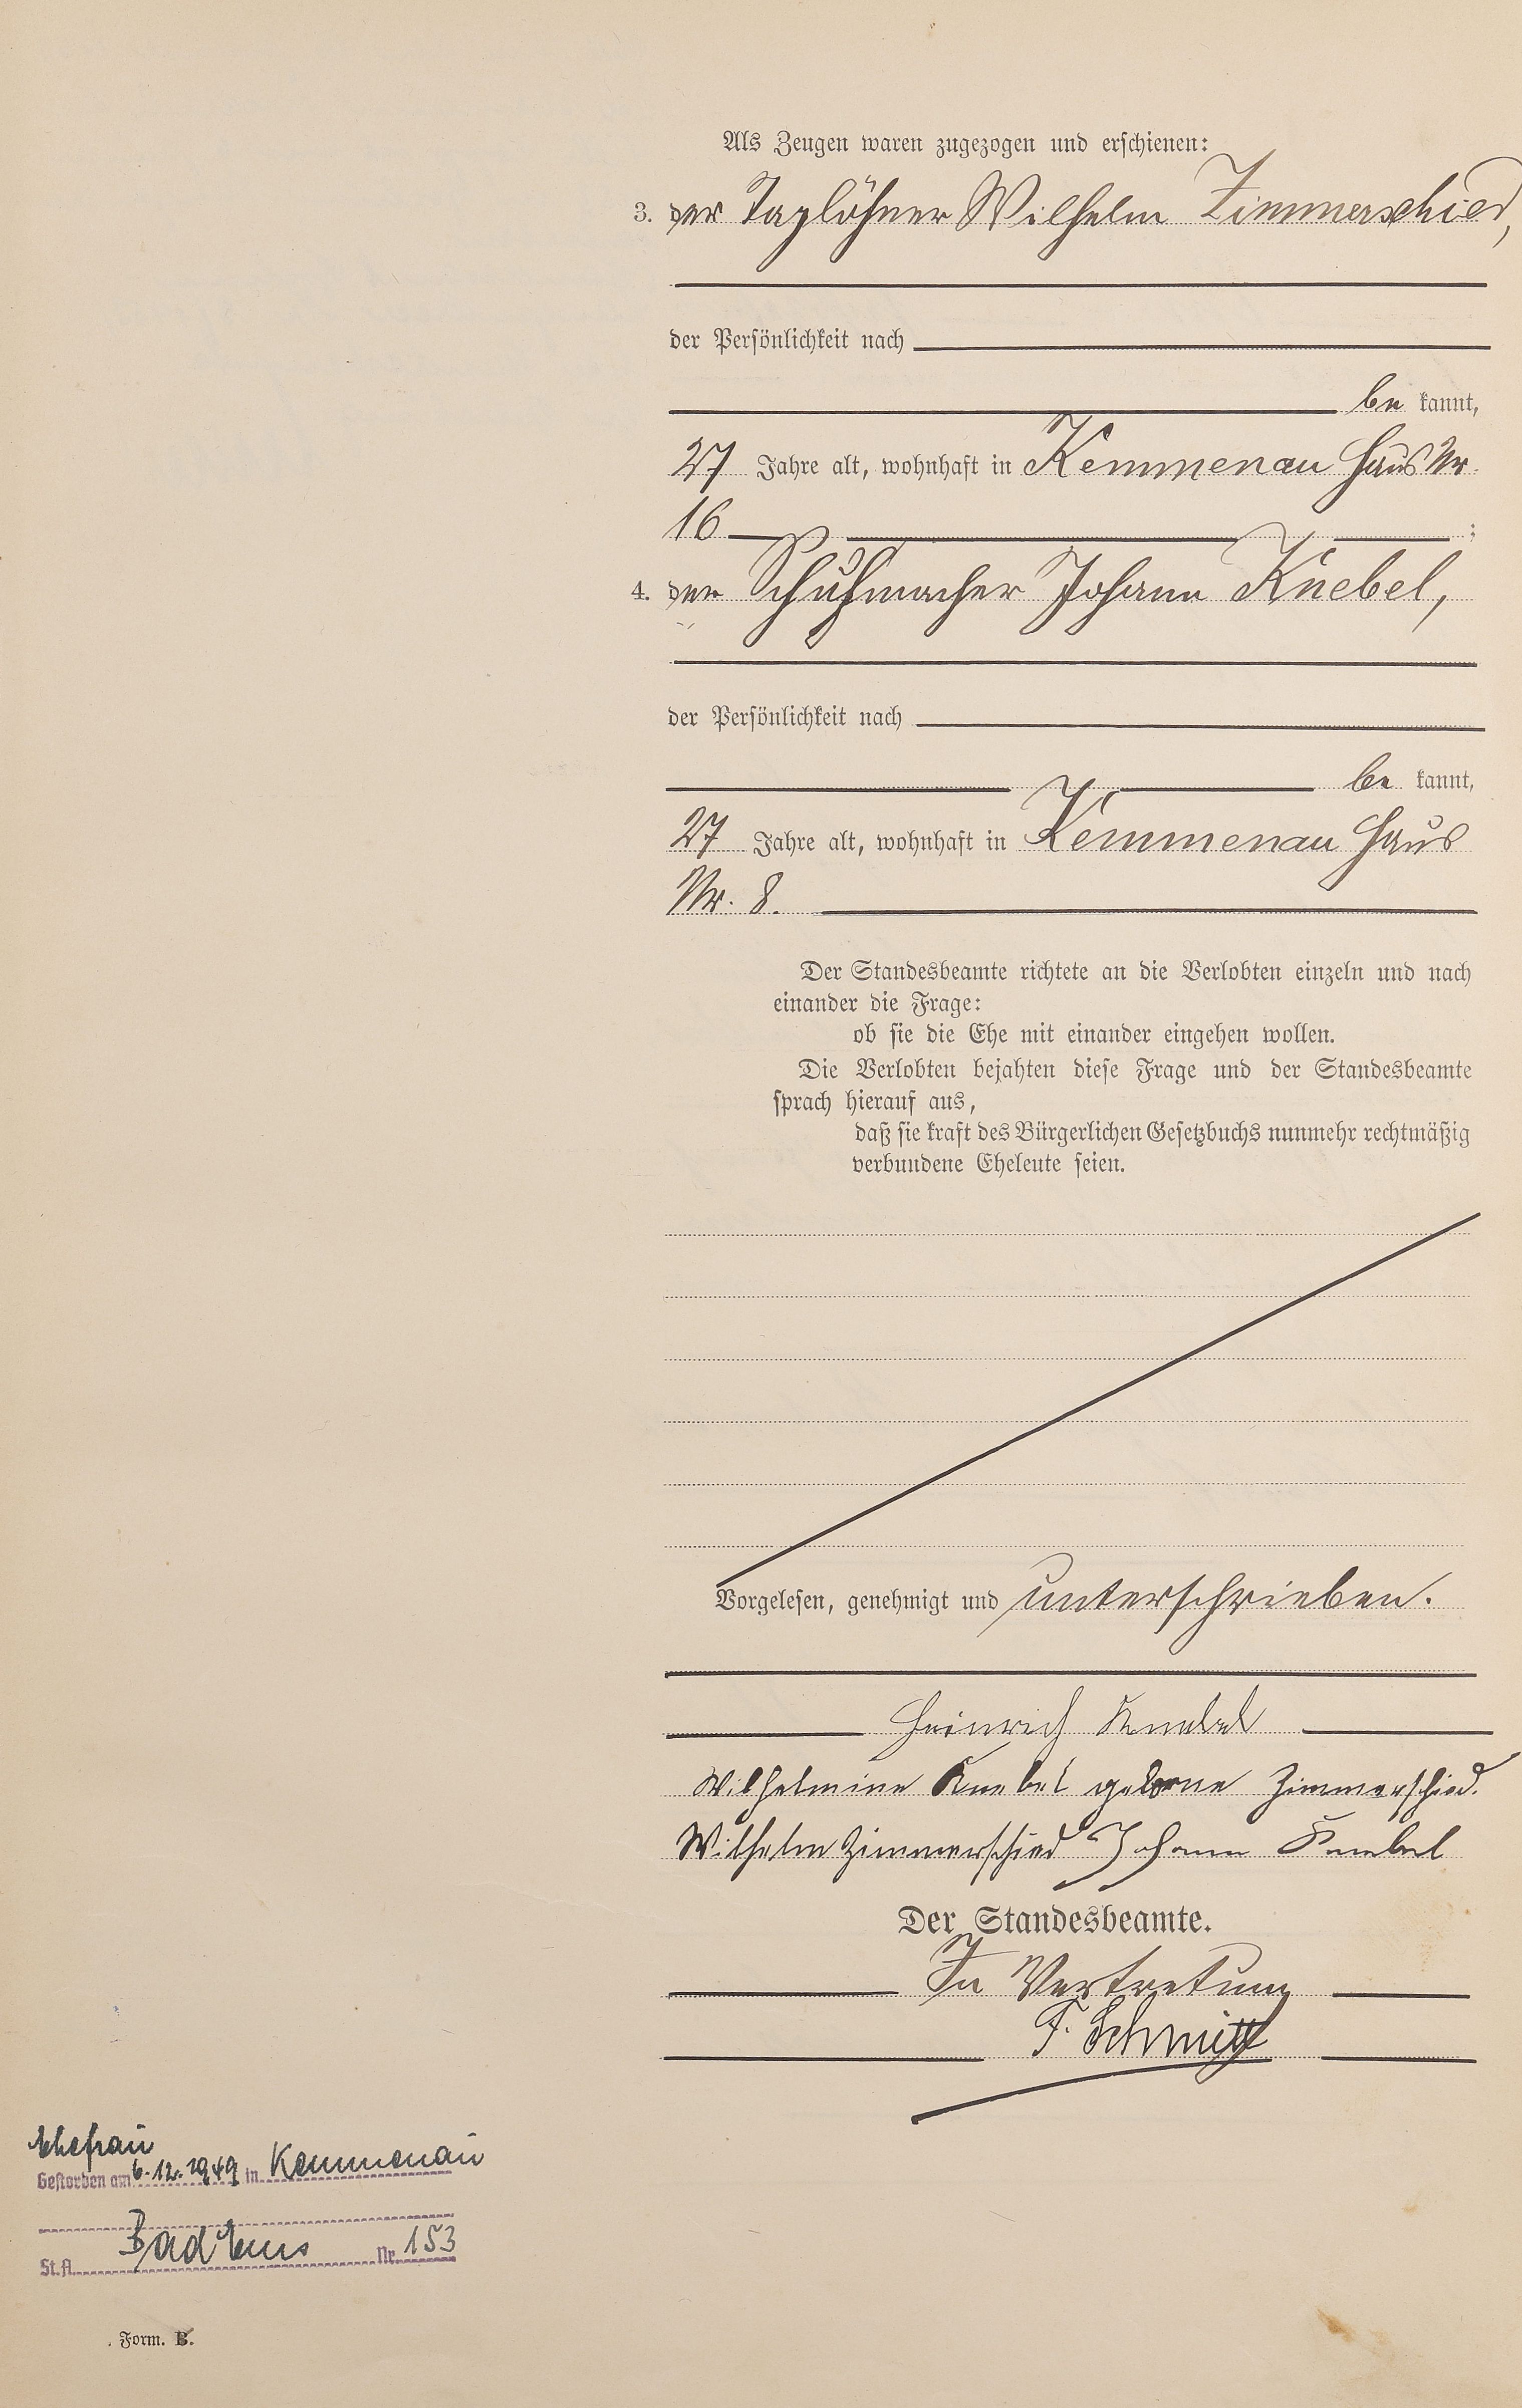 Als Zeugen waren zugezogen und erschienen:
3. der Taglöhner Wilhelm Zimmerschied,
der Persönlichkeit nach
be kannt,
27 Jahre alt, wohnhaft in Kemmenau Haus Nr.
16 ;
4. der Schuhmacher Johann Knebel,
der Persönlichkeit nach
be kannt,
27 Jahre alt, wohnhaft in Kemmenau Haus
Nr. 8.
Der Standesbeamte richtete an die Verlobten einzeln und nach
einander die Frage:
ob sie die Ehe mit einander eingehen wollen.
Die Verlobten bejahten diese Frage und der Standesbeamte
sprach hierauf aus,
daß sie kraft des Bürgerlichen Gesetzbuchs nunmehr rechtmäßig
verbundene Eheleute seien.
Vorgelesen, genehmigt und unterschrieben.
Heinrich Knebel
Wilhelmine Knebel geborne Zimmerschied.
Wilhelm Zimmerschied Johann Knebel
Der Standesbeamte.
In Vertretung
F. Schmitt
Ehefrau
Gestorben am 6.12.1949 in Kemmenau
St.A. Bad Ems Nr. 153
Form. B.